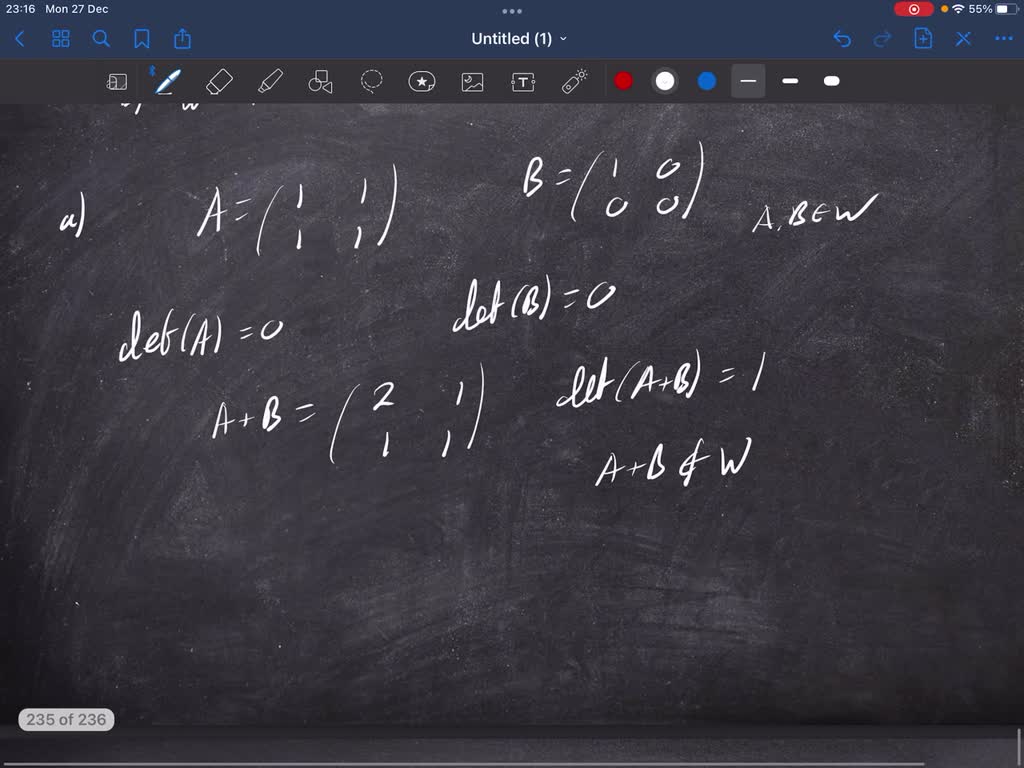 23:16 Mon 27 Dec
55%
Untitled (1)
T
a) A = ( 1 1 B = ( 1 0
1 1 ) 0 0 ) A, B ∈ W
det(A) = 0 det(B) = 0
A+B = ( 2 1 det(A+B) = 1
1 1 )
A+B ∉ W
235 of 236